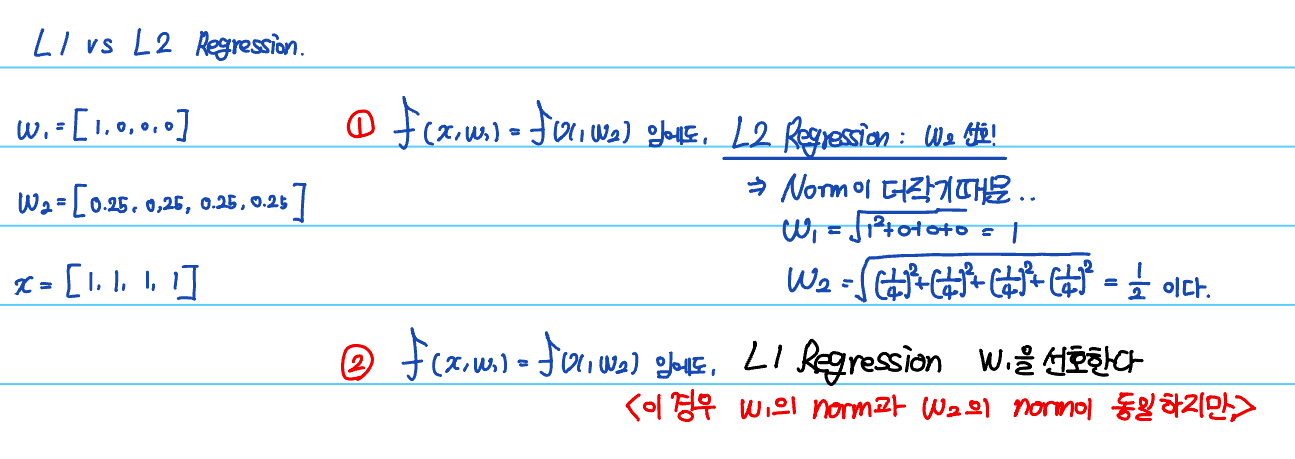 L1 vs L2 Regression.
w₁=[1.0.0.0]
① f(x,w₁) = f(x,w₂) 임에도, L2 Regression : w₂ 선호!
w₂=[0.25. 0.25, 0.25.0.25]
⇒ Norm이 더작기때문..
w₁ = √(1²+0+0+0) = 1
x = [1. 1. 1, 1]
w₂ = √((1/4)²+(1/4)²+(1/4)²+(1/4)²) = 1/2 이다.
② f(x,w₁) = f(x,w₂) 임에도, L1 Regression w₁을 선호한다
<이 경우 w₁의 norm과 w₂의 norm이 동일하지만,>